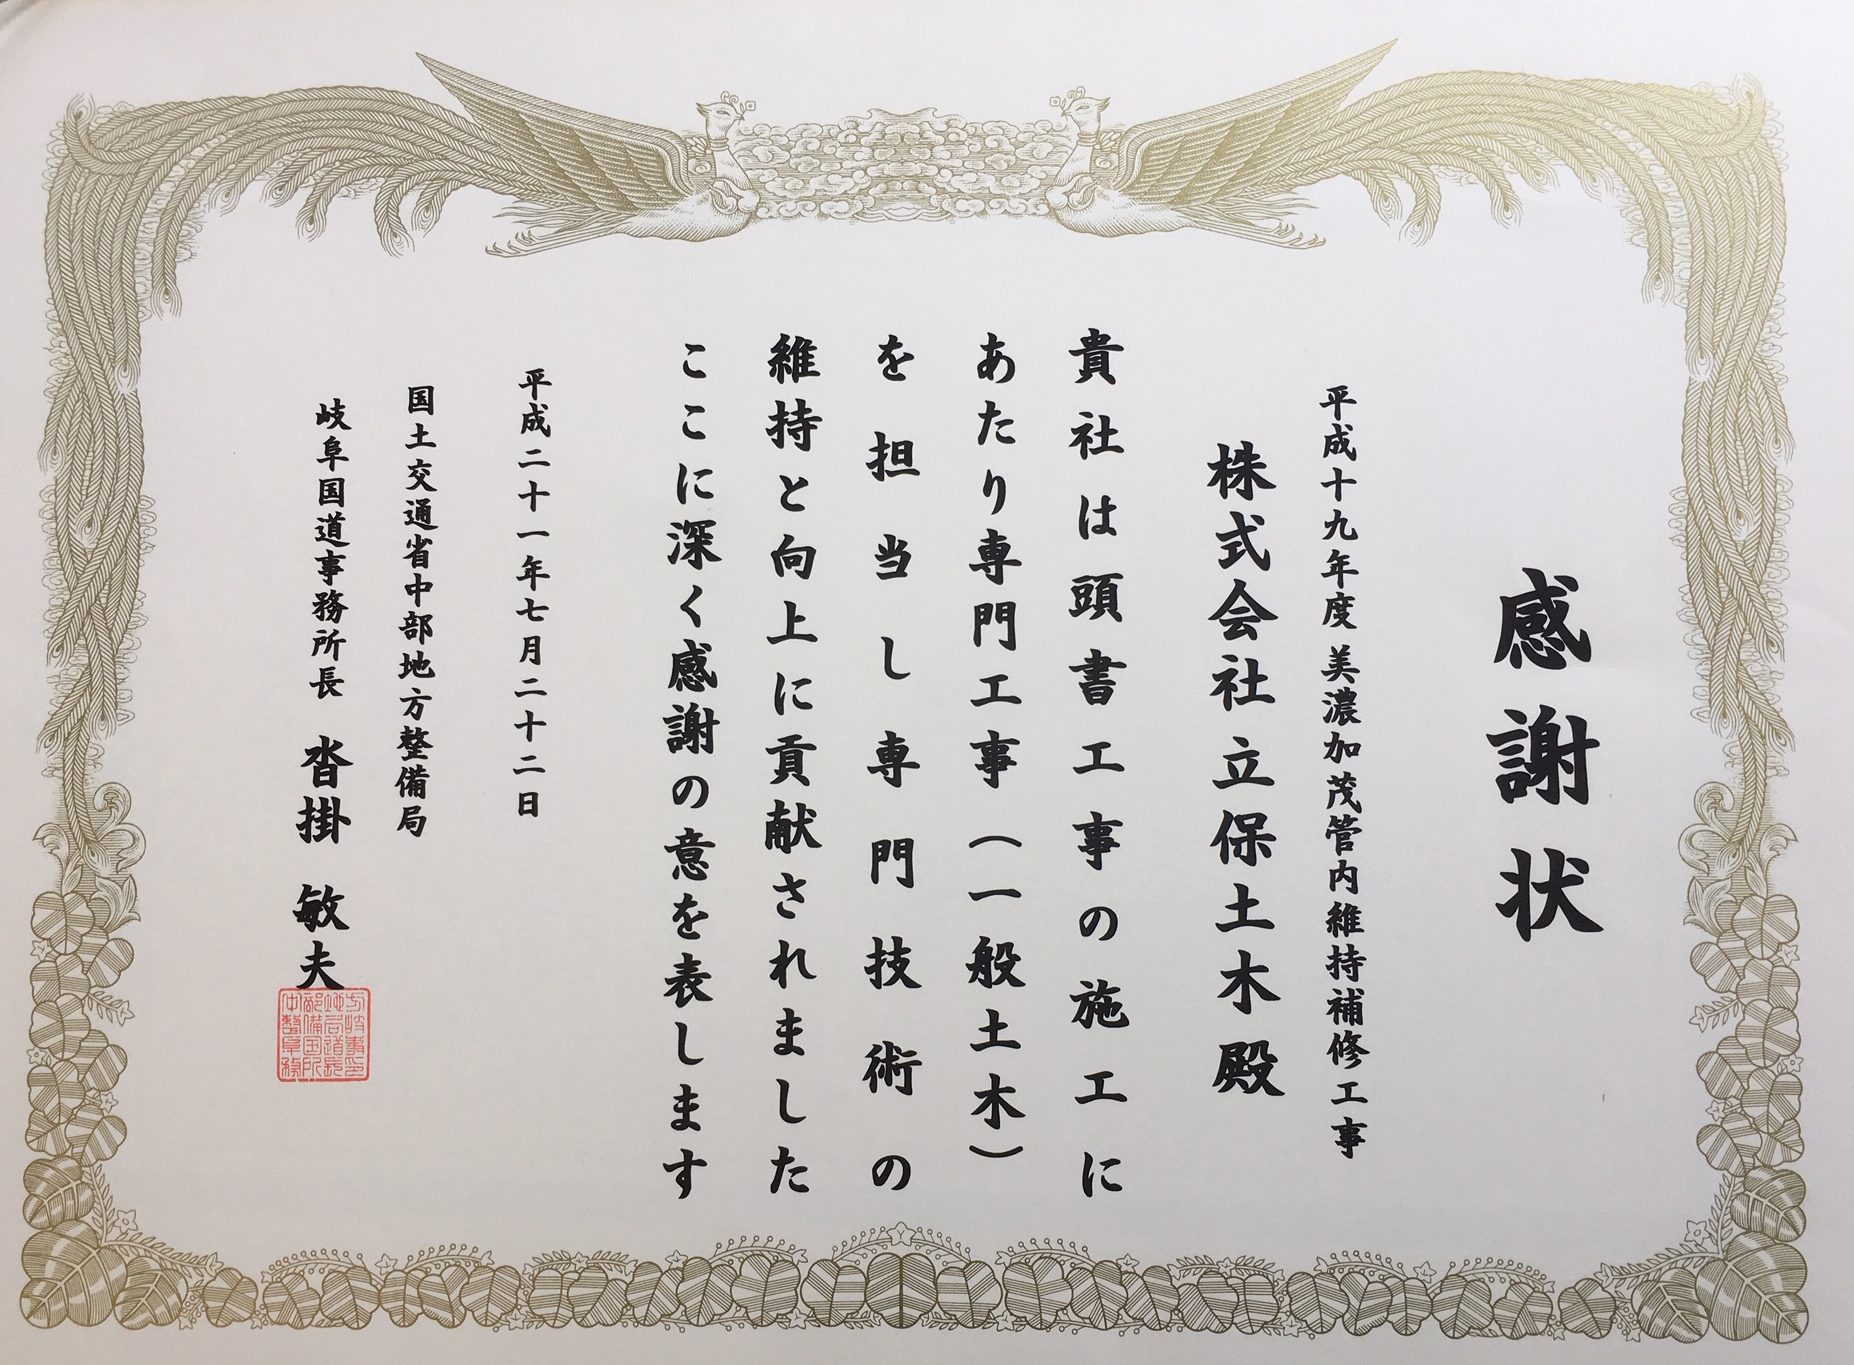 感謝状
平成十九年度 美濃加茂管内維持補修工事
株式会社 立保土木 殿
貴社は頭書工事の施工に
あたり専門工事(一般土木)
を担当し専門技術の
維持と向上に貢献されました
ここに深く感謝の意を表します
平成二十一年七月二十二日
国土交通省中部地方整備局
岐阜国道事務所長 沓掛 敏夫